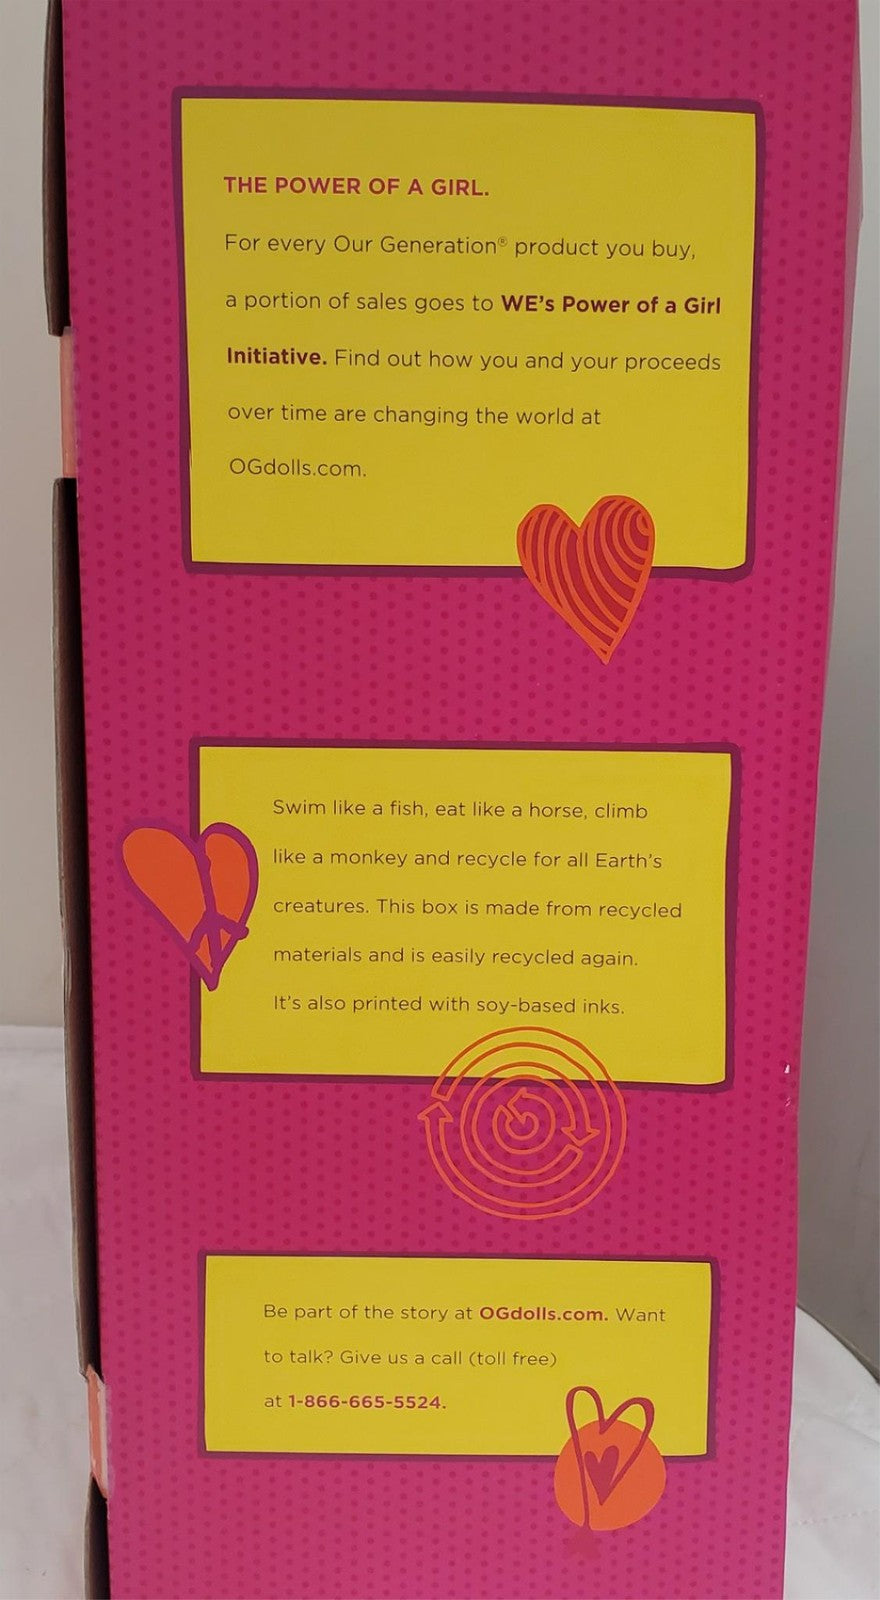 THE POWER OF A GIRL.
For every Our Generation® product you buy,
a portion of sales goes to WE's Power of a Girl
Initiative. Find out how you and your proceeds
over time are changing the world at
OGdolls.com.
Swim like a fish, eat like a horse, climb
like a monkey and recycle for all Earth's
creatures. This box is made from recycled
materials and is easily recycled again.
It's also printed with soy-based inks.
Be part of the story at OGdolls.com. Want
to talk? Give us a call (toll free)
at 1-866-665-5524.